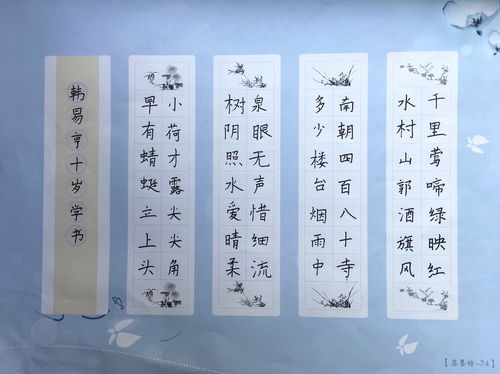 千里莺啼绿映红
水村山郭酒旗风
南朝四百八十寺
多少楼台烟雨中
泉眼无声惜细流
树阴照水爱晴柔
小荷才露尖尖角
早有蜻蜓立上头
韩易亨十岁学书
-74